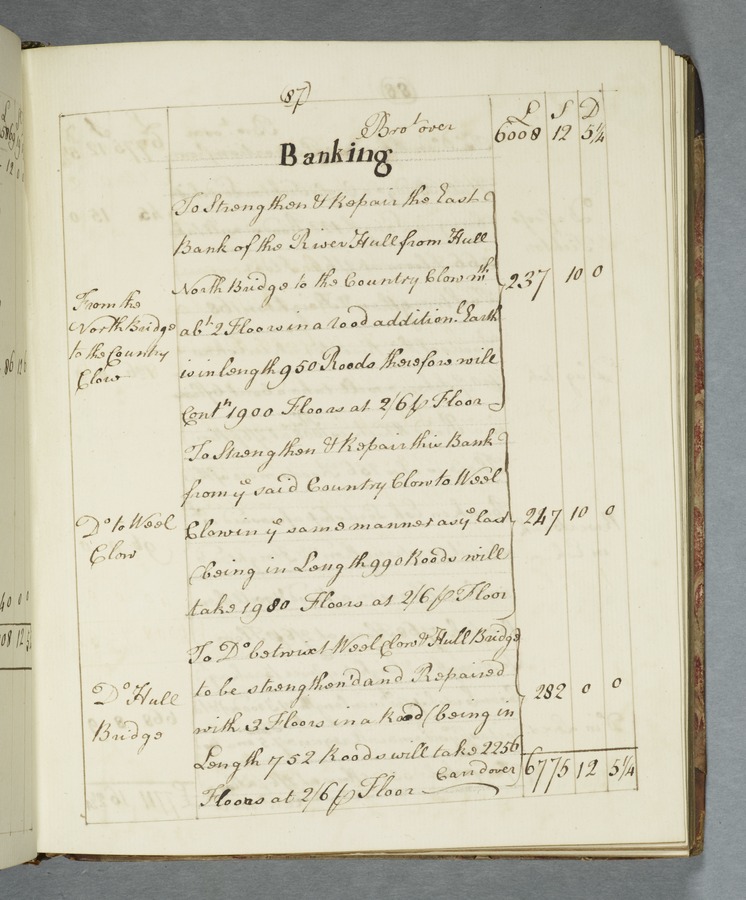 (87)
£ S D
Bro.t over 6008 12 5¼
Banking
To Strengthen & Repair the East
Bank of the River Hull from Hull
North Bridge to the Country Clow wth
From the
North Bridge
to the Country
Clow
abt 2 Floors in a rood addition.l Earth
is in length 950 Roods therefore will
Contn 1900 Floors at 2/6 ⅌ Floor
237 10 0
To Strengthen & Repair this Bank
from ye said Country Clow to Weel
Do to Weel
Clow
Clow in ye same manner as ye last
(being in Length 990 Roods will
take 1980 Floors at 2/6 ⅌ Floor
247 10 0
To Do betwixt Weel Clow & Hull Bridge
to be strengthen'd and Repaired
Do Hull
Bridge
with 3 Floors in a Rood (being in
Length 752 Roods will take 2256
Floors at 2/6 ⅌ Floor
282 0 0
Carid over 6775 12 5¼
86 12 6
40 0 0
08 12 5¼